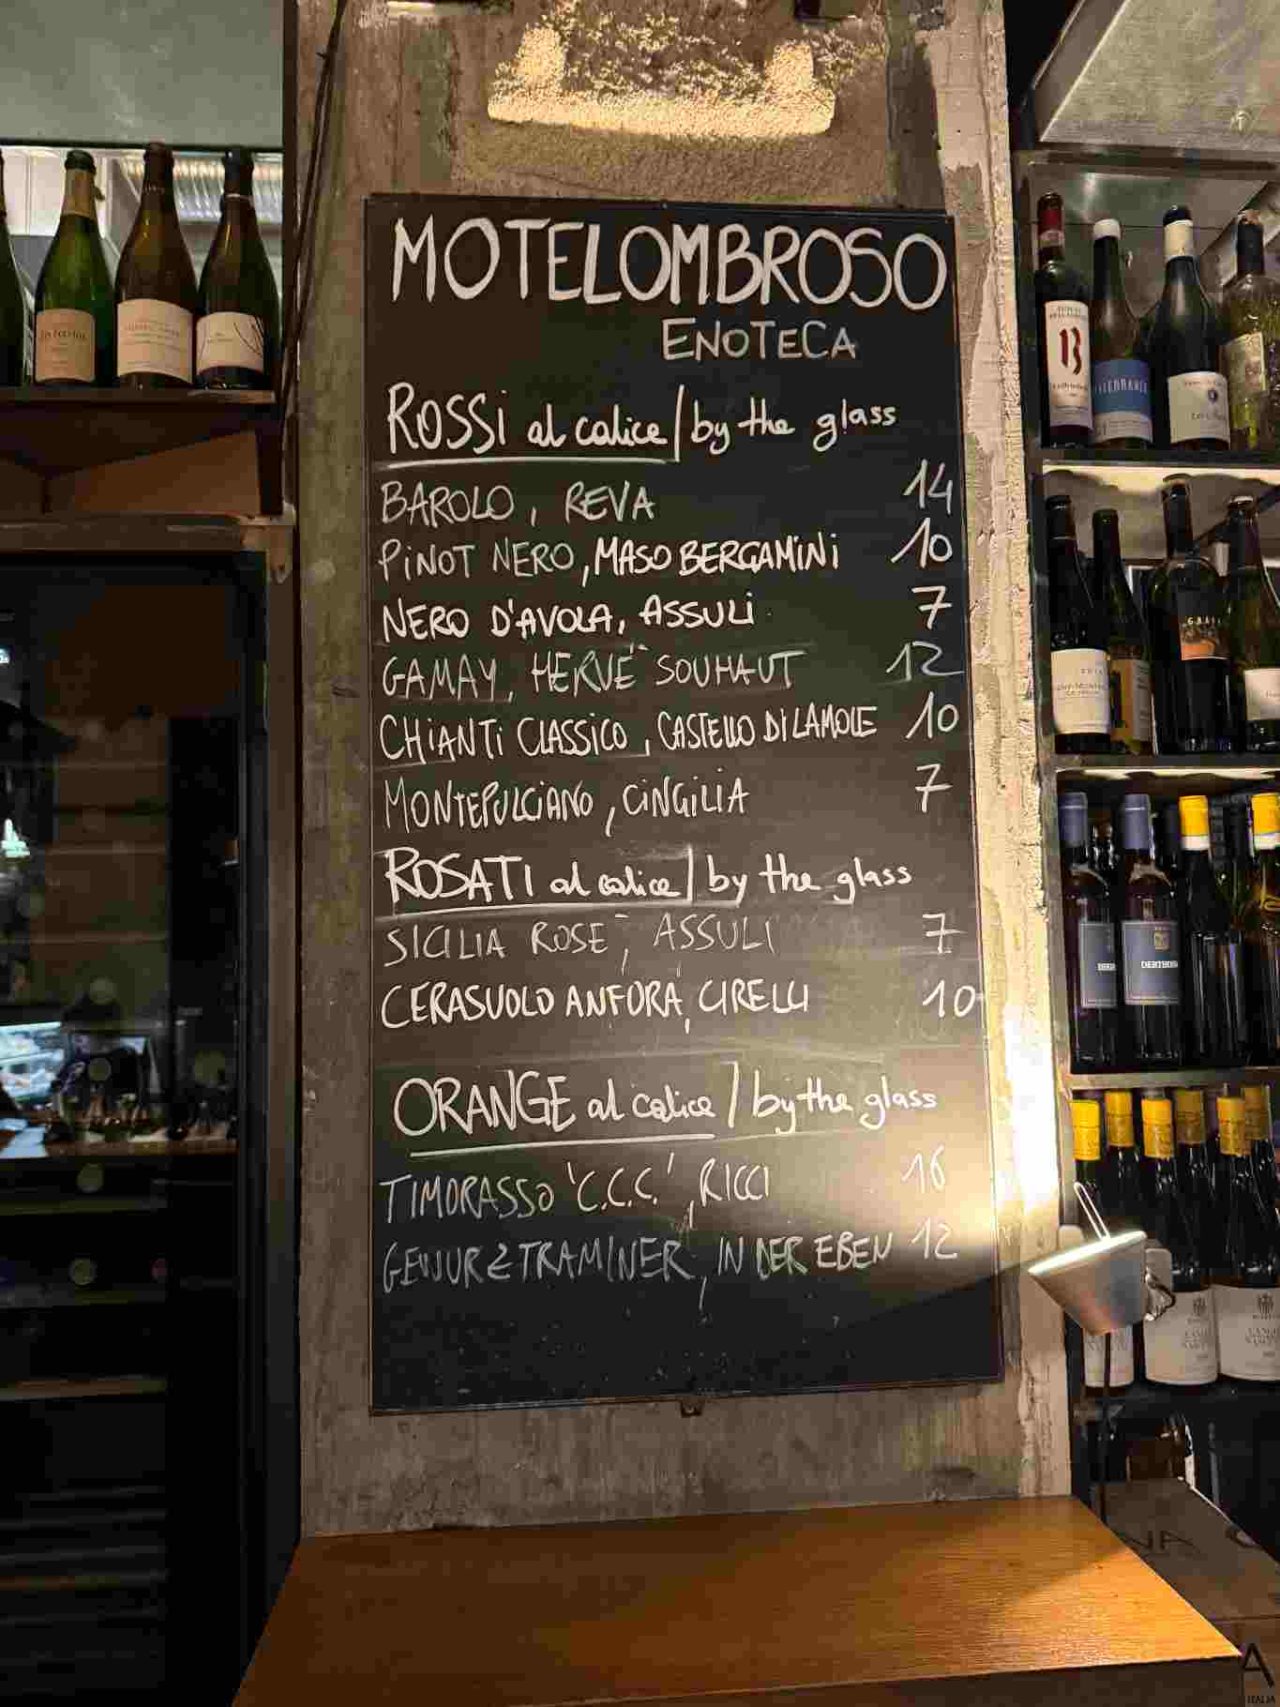 MOTELOMBROSO
ENOTECA
ROSSi al calice / by the glass
BAROLO, REVA 14
PiNOT NERO, MASO BERGAMiNi 10
NERO D'AVOLA, ASSULi 7
GAMAY, HERVÉ SOUHAUT 12
CHiANTi CLASSiCO, CASTELLO Di LAMOLE 10
MONTEPULCiANO, CiNGiLiA 7
ROSATI al calice / by the glass
SICILIA ROSE, ASSULI 7
CERASUOLO ANFORA, CIRELLI 10
ORANGE al calice / by the glass
TIMORASSO 'C.C.C.', RICCI 16
GEWURZTRAMINER, IN DER EBEN 12
13
DERTHONA
ITALIA